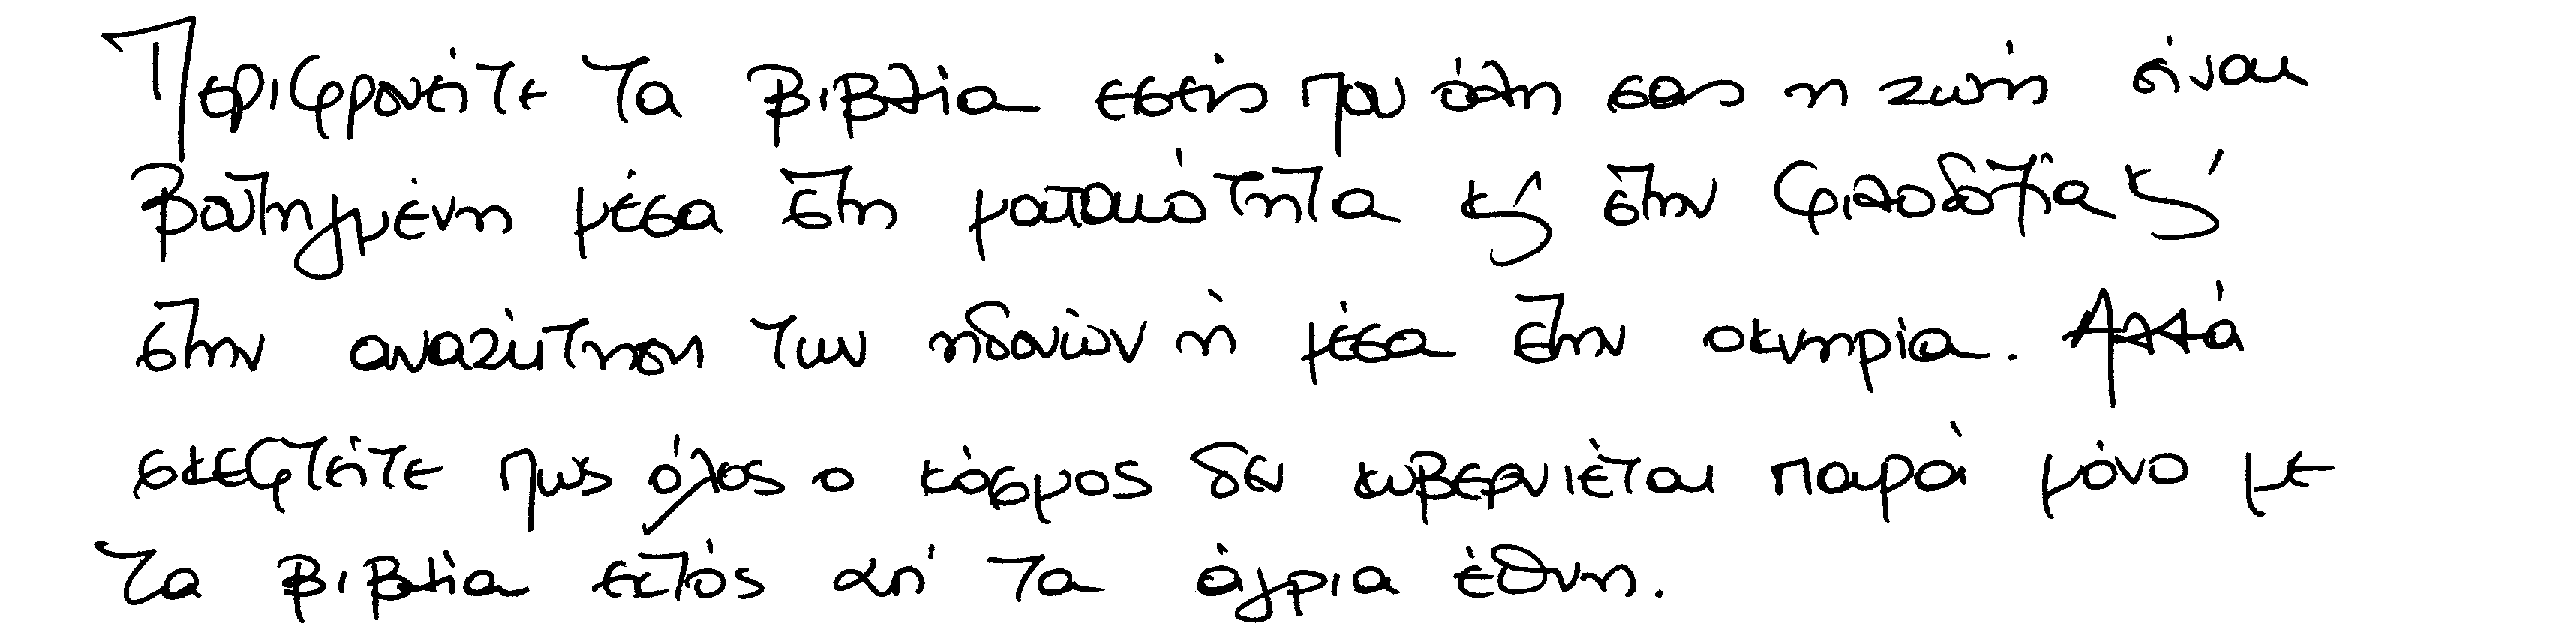 Περιφρονείτε τα βιβλία εσείς που όλη σας η ζωή είναι
βουτηγμένη μέσα στη ματαιότητα κ' στην φιλοδοξία κ'
στην αναζήτηση των ηδονών ή μέσα στην οκνηρία. Αλλά
σκεφτείτε πως όλος ο κόσμος δεν κυβερνιέται παρά μόνο με
τα βιβλία εκτός απ' τα άγρια έθνη.